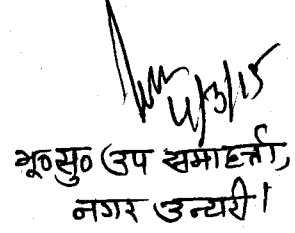 4/3/15
भू०सु० उप समाहर्त्ता,
नगर उन्टारी।